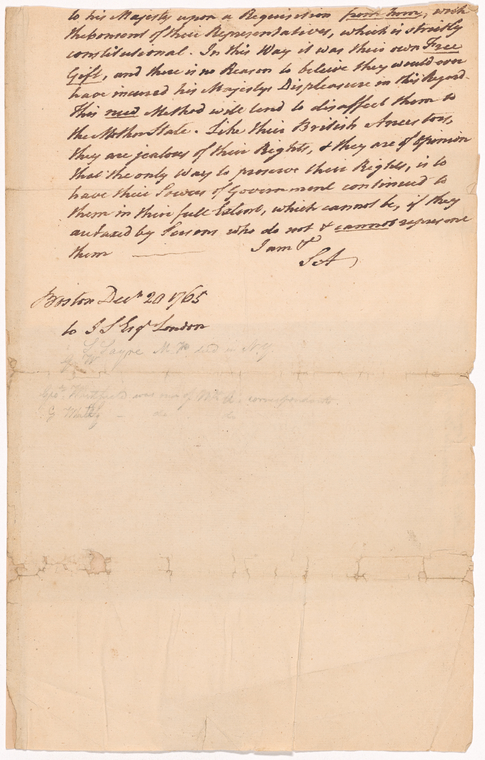 to his Majesty upon a Requisition from him, with
the consent of their Representatives, which is strictly
constitutional. In this Way it was their own Free
Gift, and there is no Reason to beleive they would ever
have incurred his Majestys Displeasure in this Regard.
This new Method will tend to disaffect them to
the Mother State. Like their British Ancestors,
they are jealous of their Rights, & they are of opinion
that the only Way to preserve their Rights, is to
have their Powers of Government continued to
them in their full Extent, which cannot be, if they
are taxed by Persons who do not & cannot represent
them
I am &c
SA
Boston Decr 20 1765
to J S Esqr London